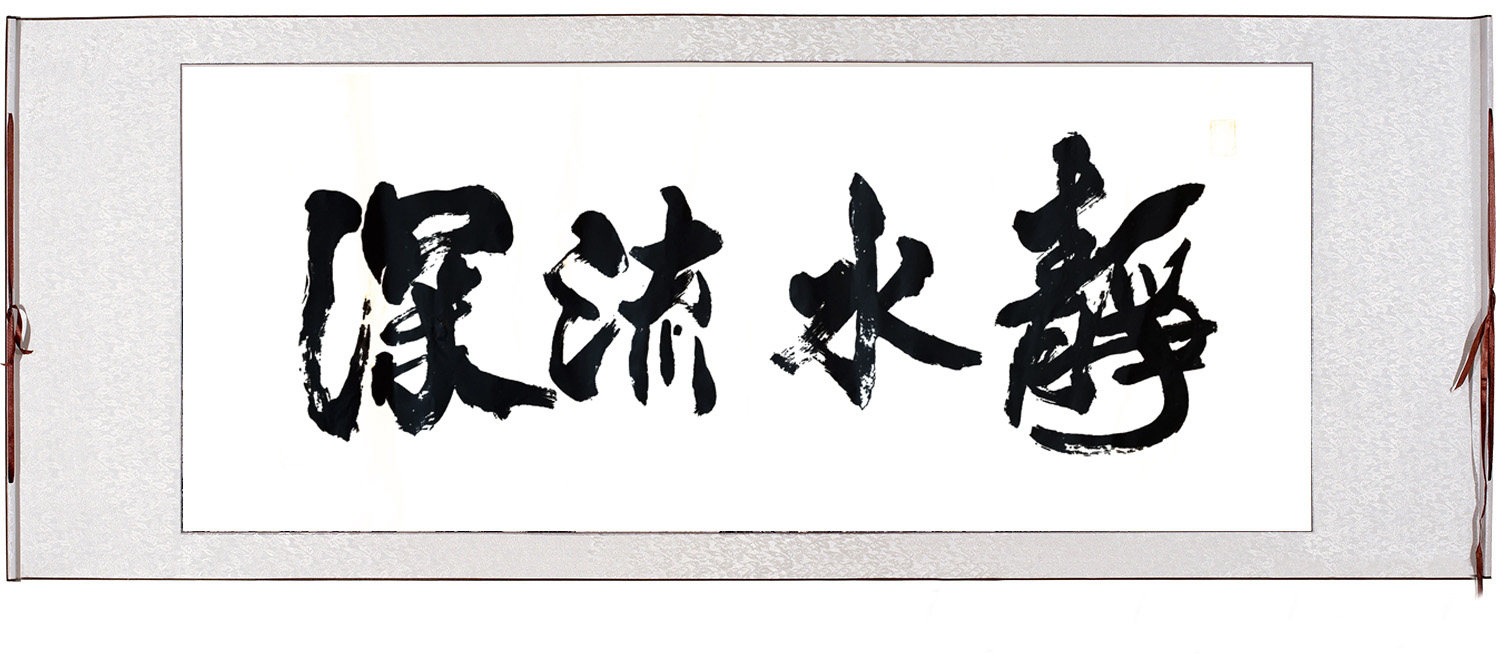 靜水流深